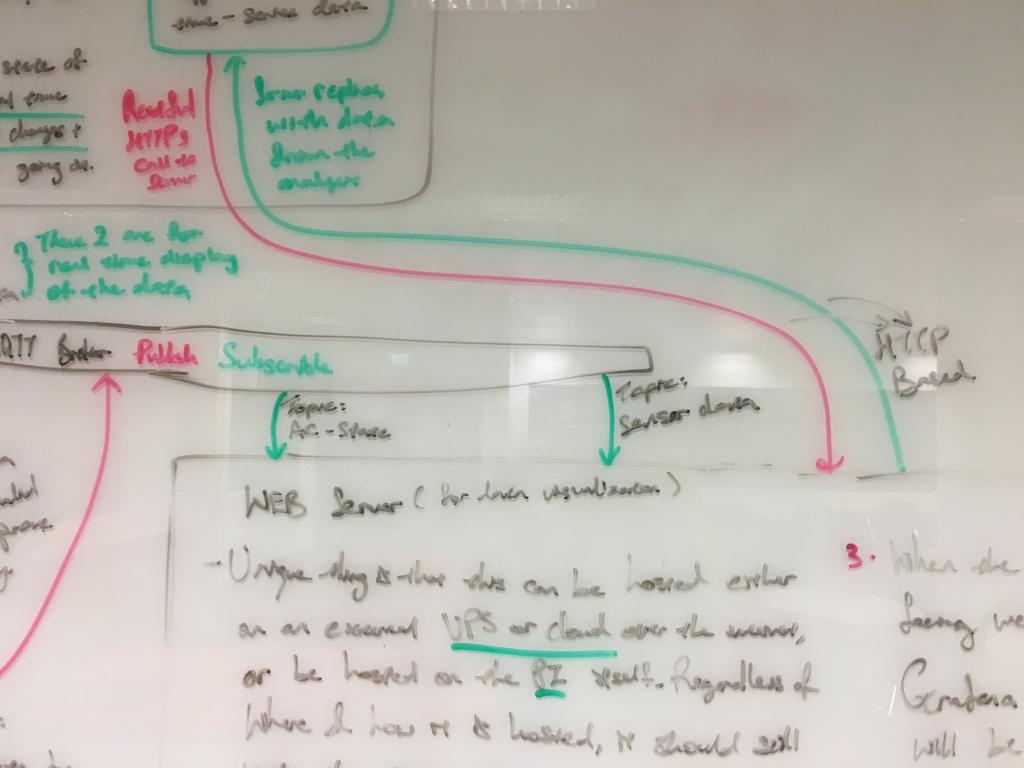 time-series data
state of
time
changes +
going on.
Restful
HTTPs
call to
Server
Server replies
with data
from the
analyser
These 2 are for
real time display
of the data
Broker Publish Subscribe
Topic:
AC-State
Topic:
Sensor data
HTTP
Based
WEB Server (for data visualization)
- Unique thing is that this can be hosted either
on an external VPS or cloud over the internet,
or be hosted on the PI itself. Regardless of
where & how it is hosted, it should still
3. When the
facing we
Grafana
will be